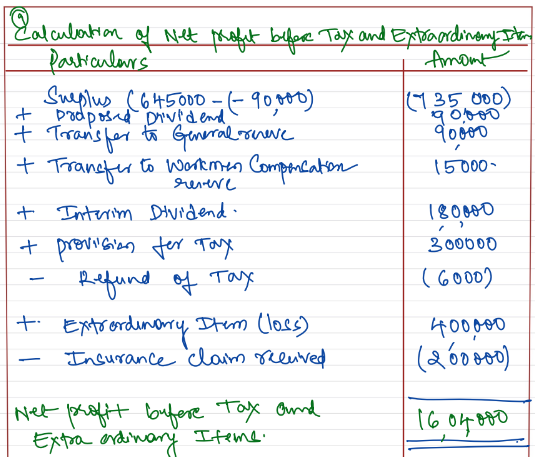 9
Calculation of Net profit before Tax and Extraordinary Item
Particulars Amount
Surplus (645000 - (- 90,000) (735 000)
+ proposed Dividend 90,000
+ Transfer to General reserve 90000
+ Transfer to Workmen Compensation 15000
reserve
+ Interim Dividend. 180000
+ provision for Tax 300000
- Refund of Tax (6000)
+ Extraordinary Item (loss) 400000
- Insurance claim received (200000)
Net profit before Tax and
Extra ordinary Items. 16,04,000